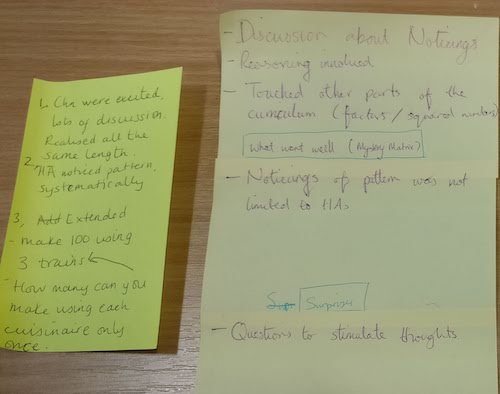 1, Chn were excited,
lots of discussion.
Realised all the
same length.
2, HA noticed pattern
systematically
3, Add Extended
- make 100 using
3 trains
- How many can you
make using each
cuisinaire only
once.
- Discussion about Noticings
- Reasoning involved
- Touched other parts of the
curriculum (factors / squared numbers)
What went well (Mystery Matrix)
- Noticings of pattern was not
limited to HAs
Supr Surprises
- Questions to stimulate thoughts